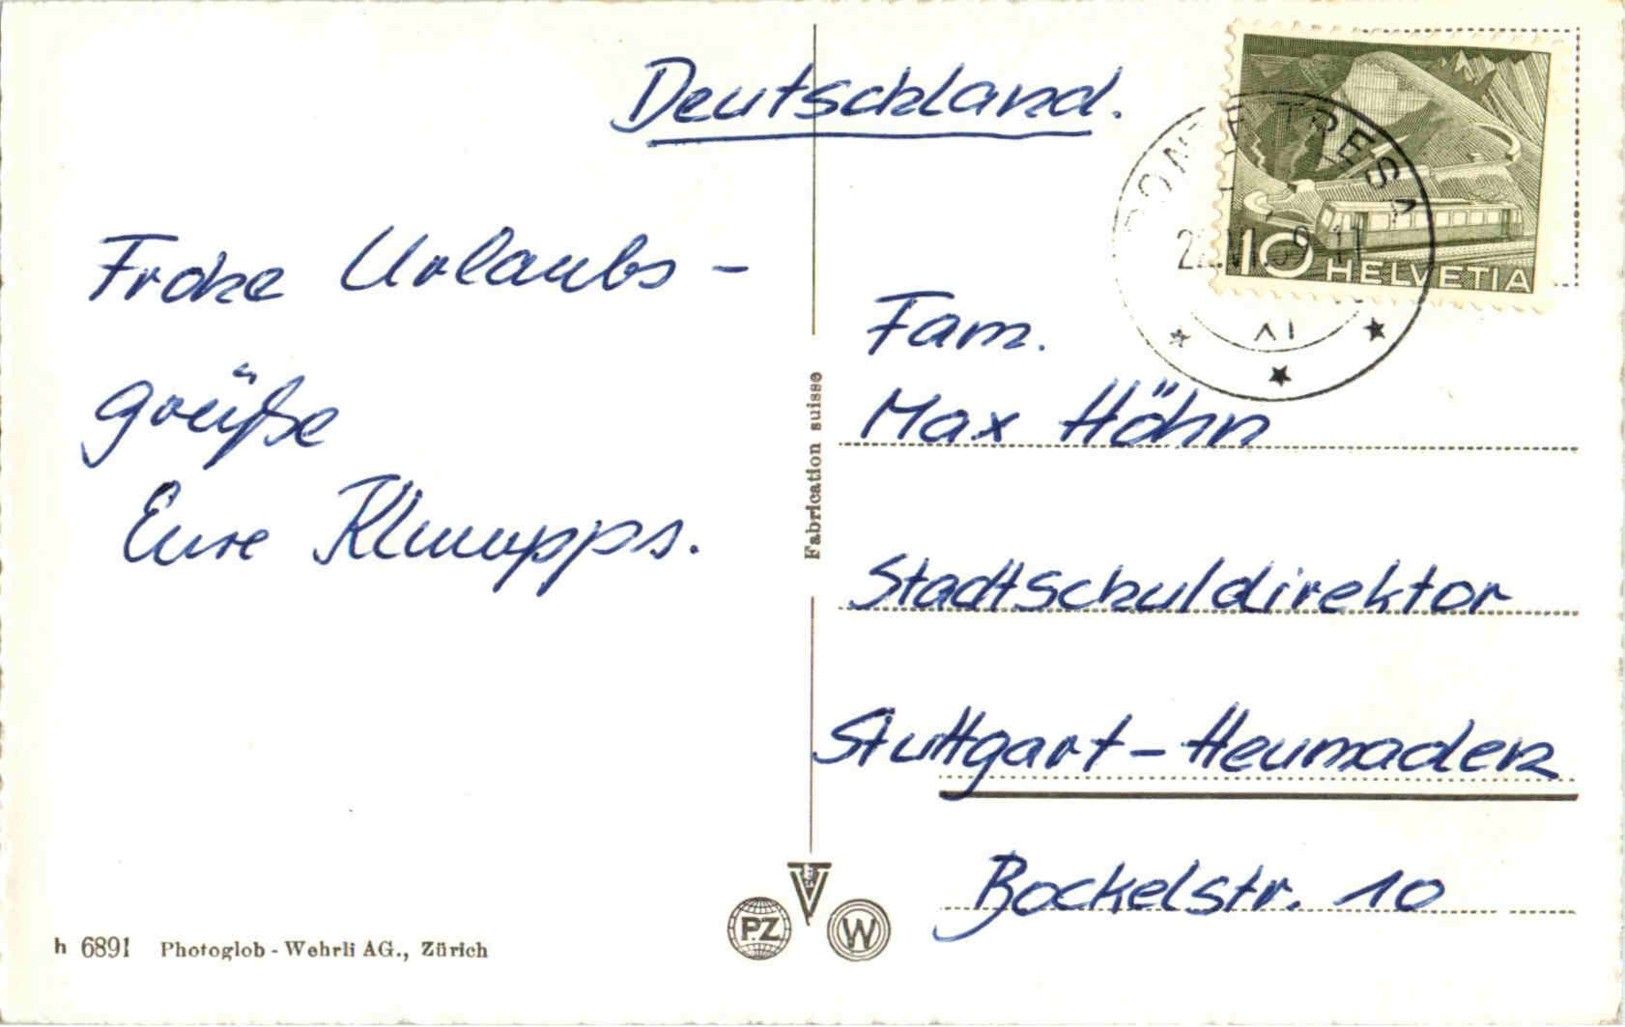 Deutschland.
Frohe Urlaubs-
grüße
Eure Klumpps.
Fam.
Max Höhn
Stadtschuldirektor
Stuttgart-Heumaden
Bockelstr. 10
PONTE TRESA
10 HELVETIA
Fabrication suisse
PZ
W
h 6891 Photoglob-Wehrli AG., Zürich